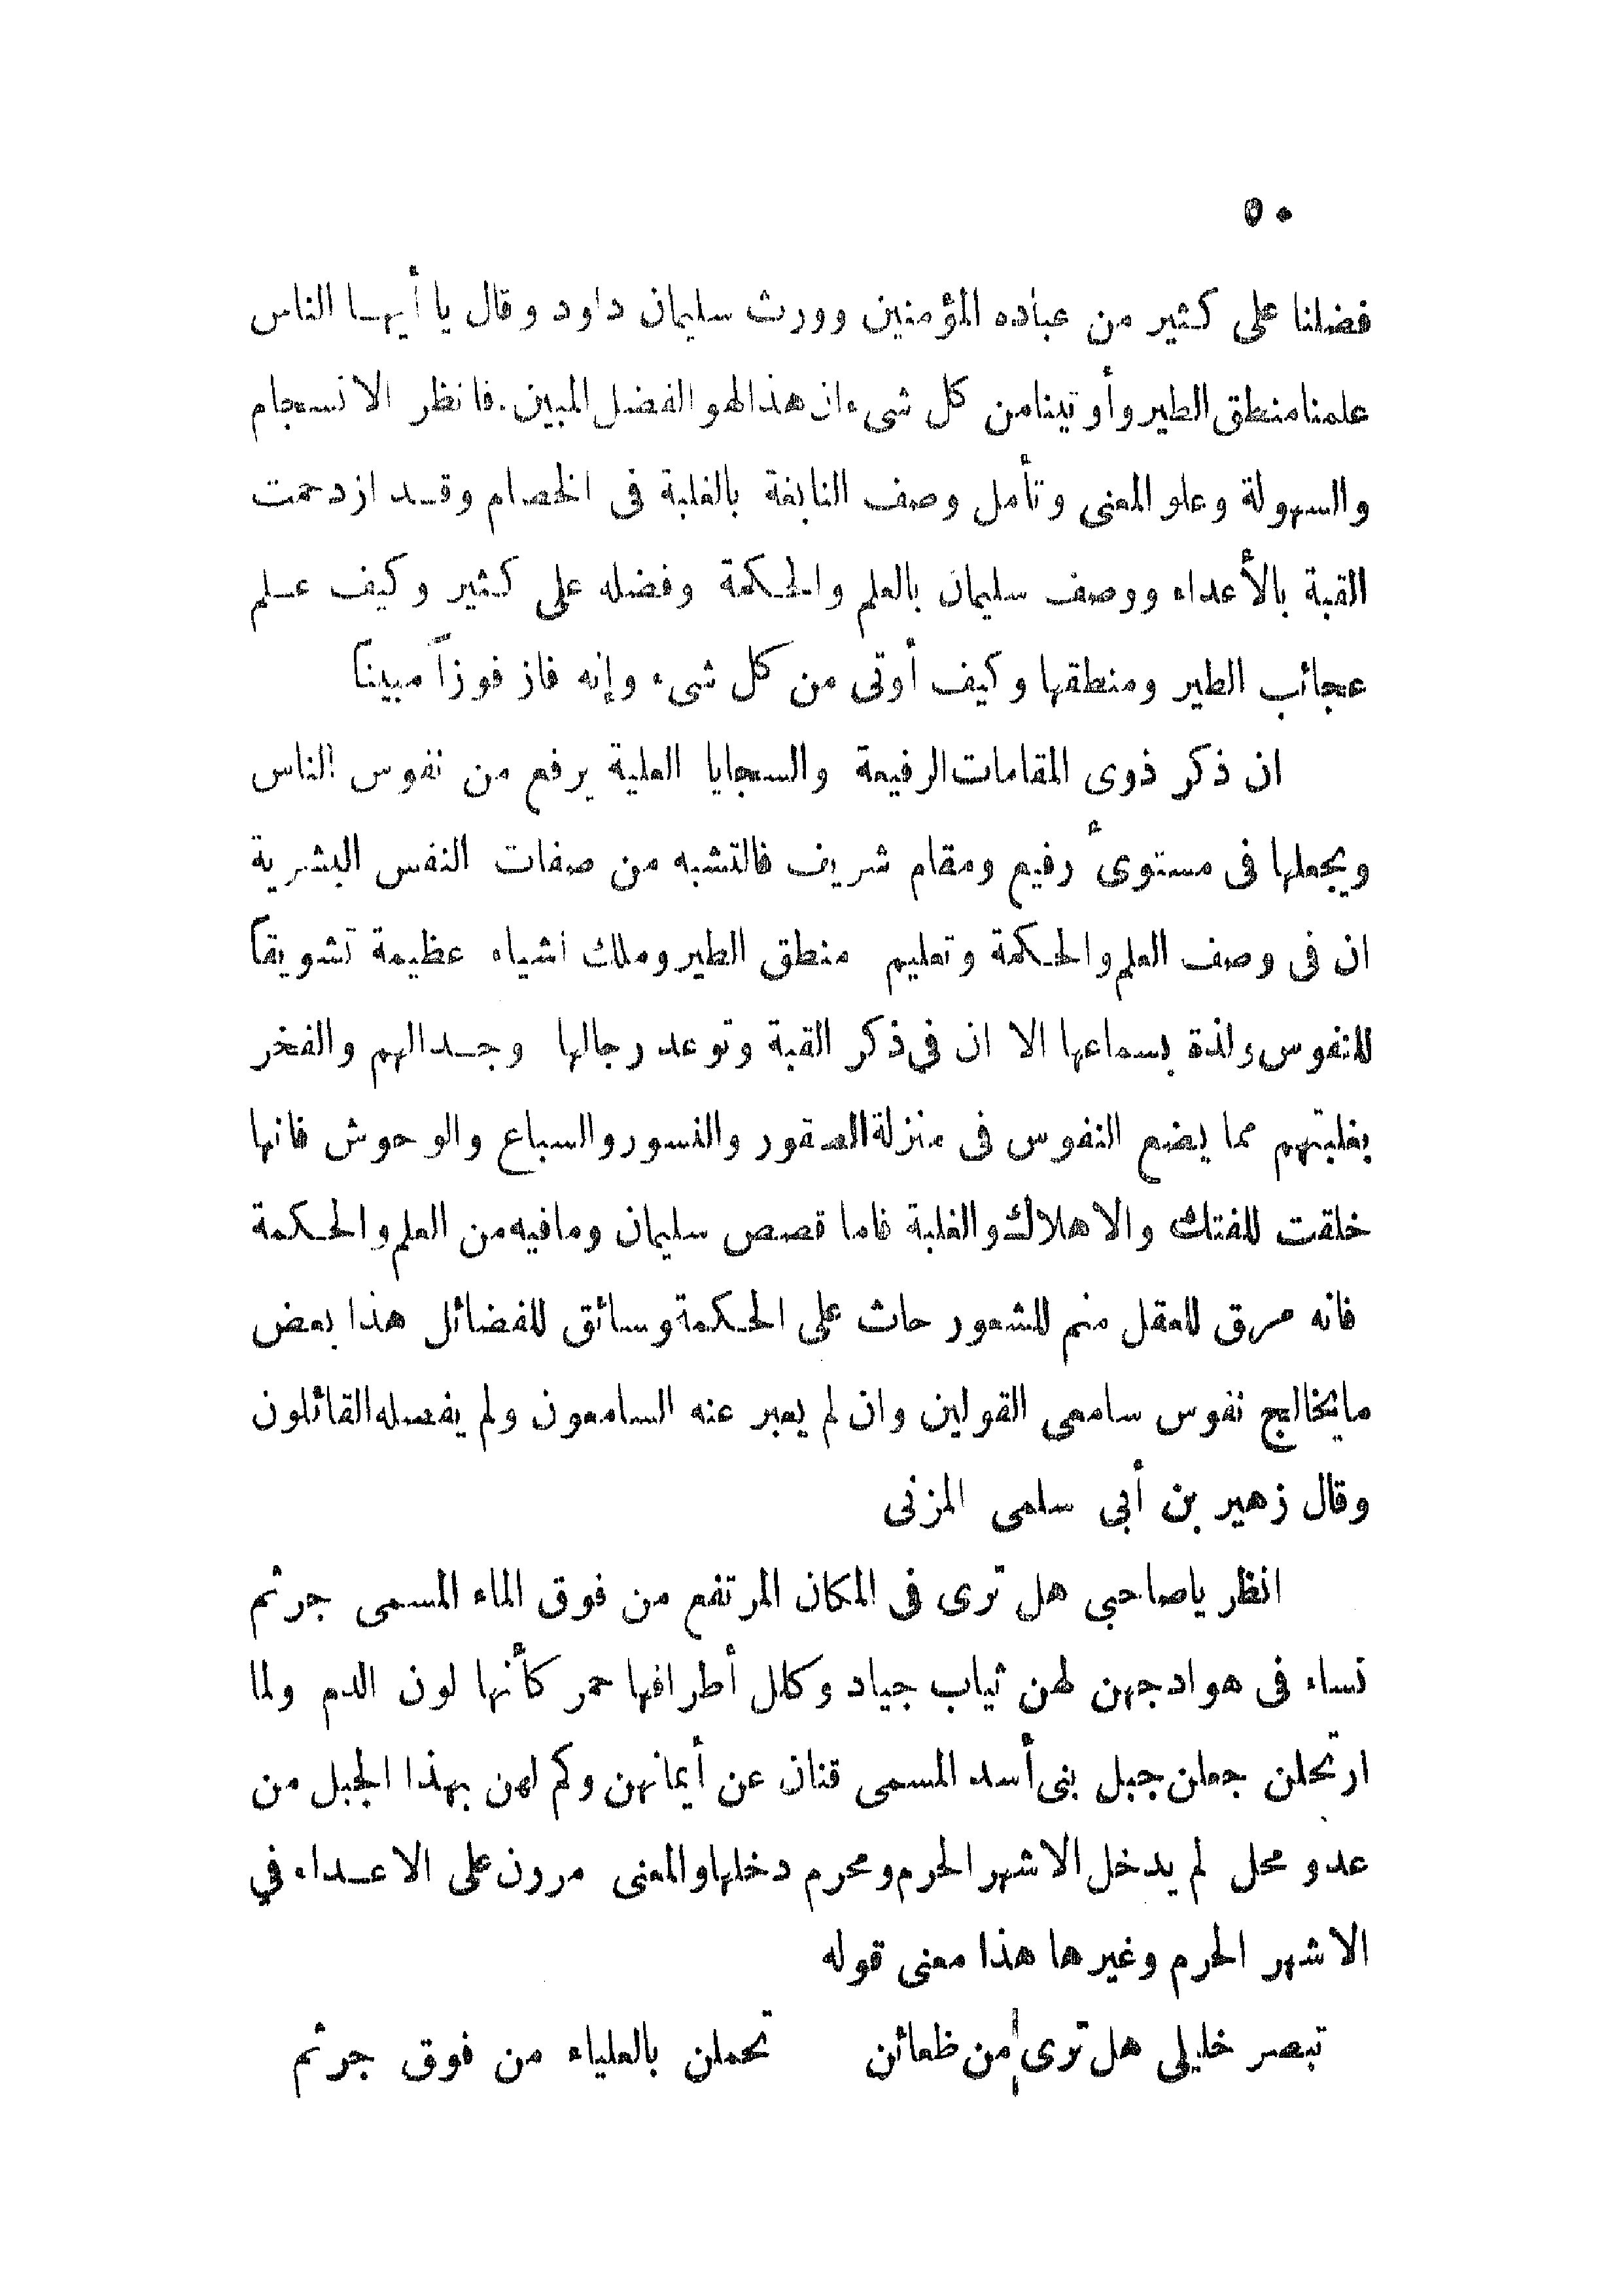 ٥٠
فضلنا على كثير من عباده المؤمنين وورث سليمان داود وقال يا أيها الناس
علمنا منطق الطير وأوتينا من كل شىء ان هذا لهو الفضل المبين. فانظر الانسجام
والسهولة وعلو المعنى وتأمل وصف النابغة بالغلبة فى الخصام وقد ازدحمت
القبة بالأعداء ووصف سليمان بالعلم والحكمة وفضله على كثير وكيف علم
عجائب الطير ومنطقها وكيف أوتى من كل شىء وإنه فاز فوزاً مبيناً
ان ذكر ذوى المقامات الرفيعة والسجايا العلية يرفع من نفوس الناس
ويجعلها فى مستوىً رفيع ومقام شريف فالتشبه من صفات النفس البشرية
ان فى وصف العلم والحكمة وتعليم منطق الطير وملك أشياء عظيمة تشويقاً
للنفوس ولذة بسماعها الا ان في ذكر القبة وتوعد رجالها وجدالهم والفخر
بغلبتهم مما يضع النفوس فى منزلة الصقور والنسور والسباع والوحوش فانها
خلقت للفتك والاهلاك والغلبة فاما قصص سليمان وما فيه من العلم والحكمة
فانه مرق للعقل منم للشعور حاث على الحكمة وسائق للفضائل هذا بعض
ما يخالج نفوس سامعى القولين وان لم يعبر عنه السامعون ولم يفصله القائلون
وقال زهير بن أبى سلمى المزنى
انظر يا صاحبي هل ترى فى المكان المرتفع من فوق الماء المسمى جرثم
نساء فى هوادجهن لهن ثياب جياد وكلل أطرافها حمر كأنها لون الدم ولما
ارتحلن جعلن جبل بنى أسد المسمى قنان عن أيمانهن وكم لهن بهذا الجبل من
عدو محل لم يدخل الاشهر الحرم ومحرم دخلها والمعنى مررن على الاعداء في
الاشهر الحرم وغيرها هذا معنى قوله
تبصر خليلى هل ترى من ظعائن تحملن بالعلياء من فوق جرثم